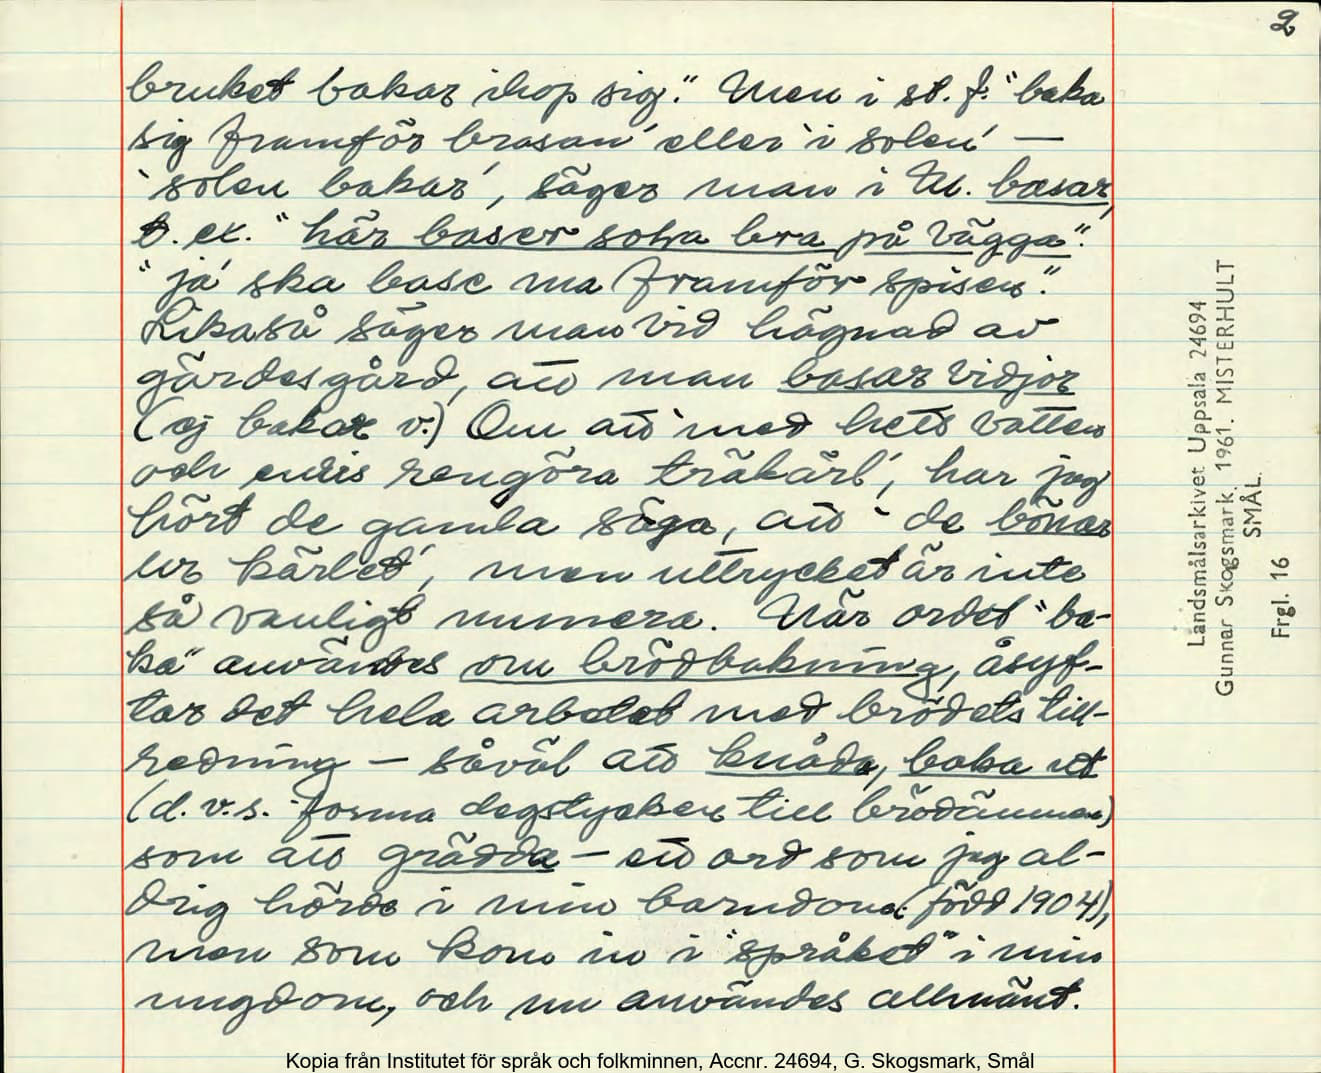 2
bruket bakar ihop sig." Men i st. f. "baka
sig framför brasan' eller 'i solen' —
'solen bakar', säger man i M. basar,
t. ex. "här baser sola bra på vägga".
"ja' ska base ma framför spisen".
Likaså säger man vid hägnad av
gärdesgård, att man basar vidjor
(ej bakar v.) Om att 'med hett vatten
och enris rengöra träkärl', har jag
hört de gamla säga, att 'de bönar
ur kärlet', men uttrycket är inte
så vanligt numera. När ordet "ba-
ka" användes om brödbakning, åsyf-
tar det hela arbetet med brödets till-
redning – såväl att knåda, baka ut
(d.v.s. forma degstycken till brödämnen)
som att grädda – ett ord som jag al-
drig hörde i min barndom (född 1904),
men som kom in i "språket" i min
ungdom, och nu användes allmänt.
Landsmålsarkivet Uppsala 24694
Gunnar Skogsmark. 1961. MISTERHULT
SMÅL.
Frgl. 16
Kopia från Institutet för språk och folkminnen, Accnr. 24694, G. Skogsmark, Smål